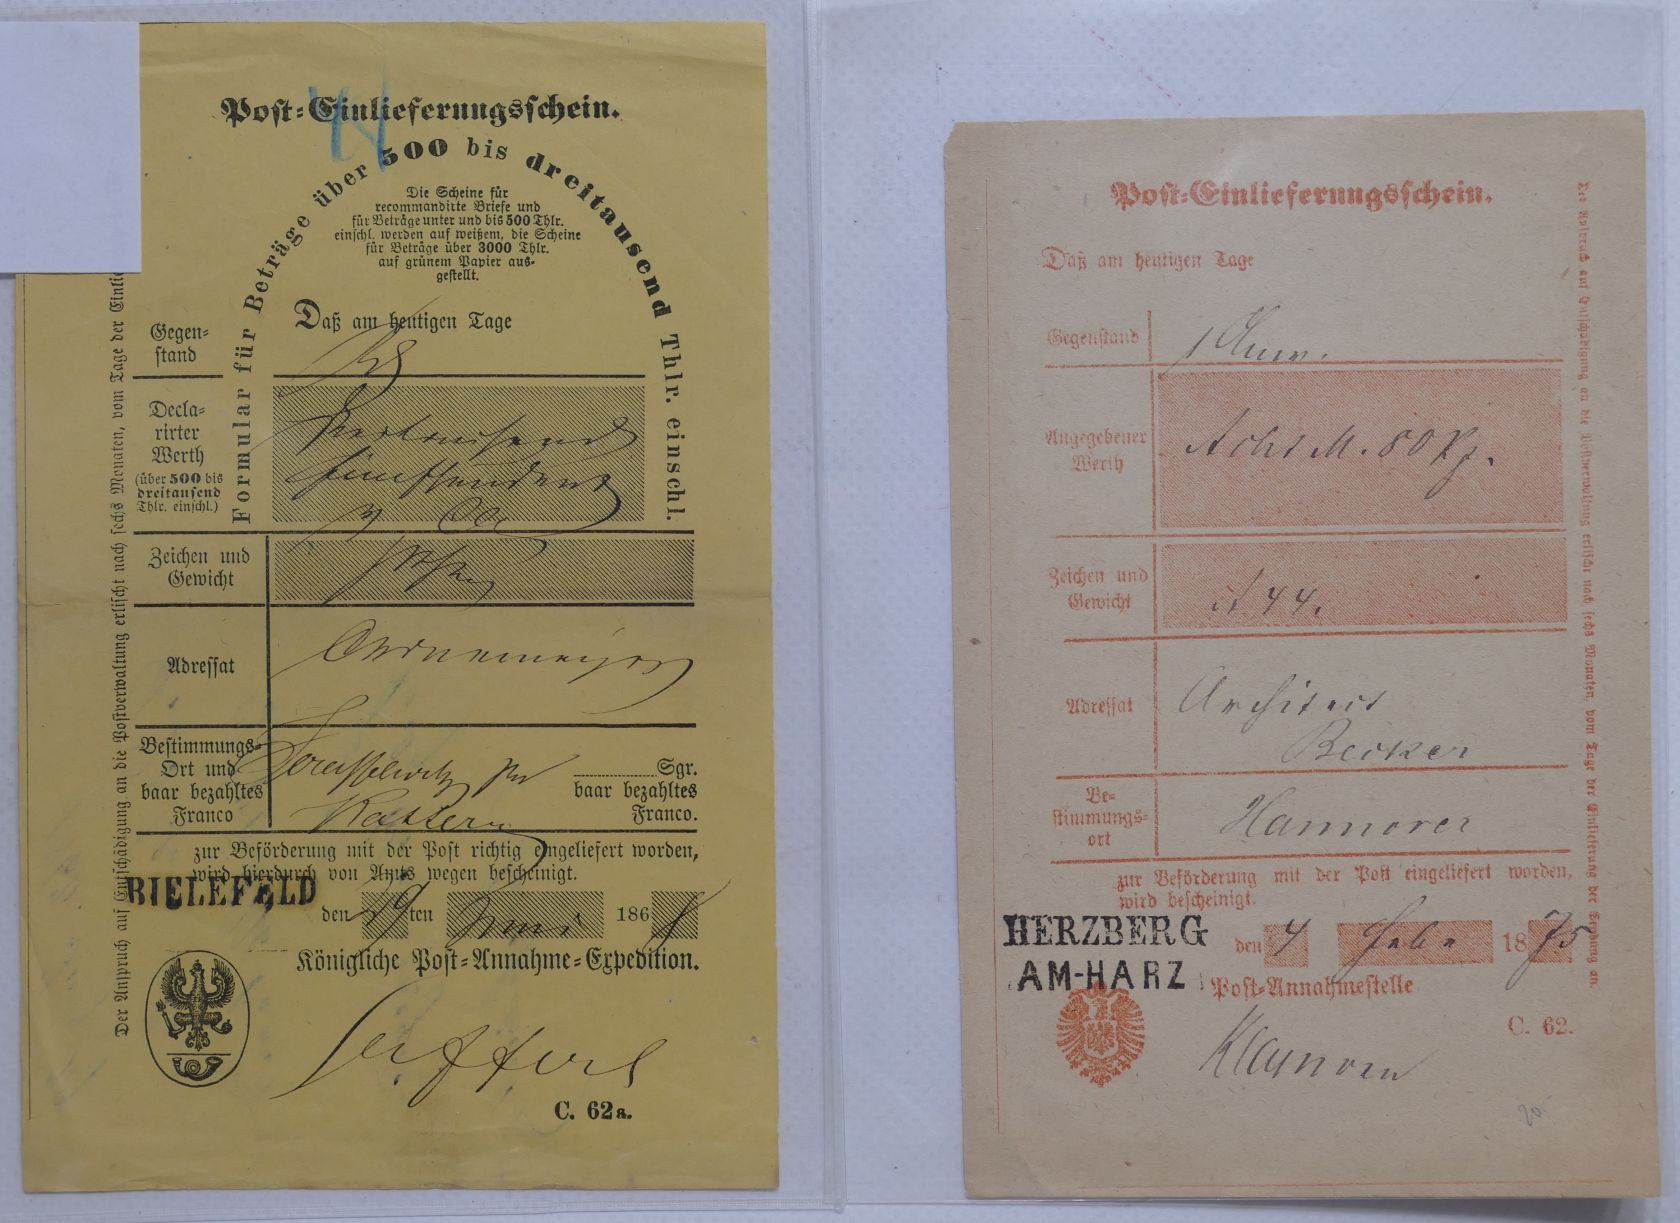 Post-Einlieferungsschein.
Formular für Beträge über 500 bis dreitausend Thlr. einschl.
Die Scheine für
recommandirte Briefe und
für Beträge unter und bis 500 Thlr.
einschl. werden auf weißem, die Scheine
für Beträge über 3000 Thlr.
auf grünem Papier aus-
gestellt.
Daß am heutigen Tage
Gegen-
stand
Decla-
rirter
Werth
(über 500 bis
dreitausend
Thlr. einschl.)
Zeichen und
Gewicht
Adressat
Bestimmungs-
Ort und
baar bezahltes
Franco
Sgr.
baar bezahltes
Franco.
zur Beförderung mit der Post richtig eingeliefert worden,
wird hierdurch von Amts wegen bescheinigt.
BIELEFELD
den 29ten 186
Königliche Post-Annahme-Expedition.
C. 62a.
Der Anspruch auf Entschädigung an die Postverwaltung erlischt nach sechs Monaten, vom Tage der
Post-Einlieferungsschein.
Daß am heutigen Tage
Gegenstand
Angegebener
Werth
Acht M. 80 Pf.
Zeichen und
Gewicht
Adressat
Architect
Becker
Be-
stimmungs-
ort
Hannover
zur Beförderung mit der Post eingeliefert worden,
wird bescheinigt.
HERZBERG
AM-HARZ
den 4 Febr 1875
Post-Annahmestelle
C. 62.
Der Anspruch auf Entschädigung an die Postverwaltung erlischt nach sechs Monaten vom Tage der Einlieferung der Sendung an.